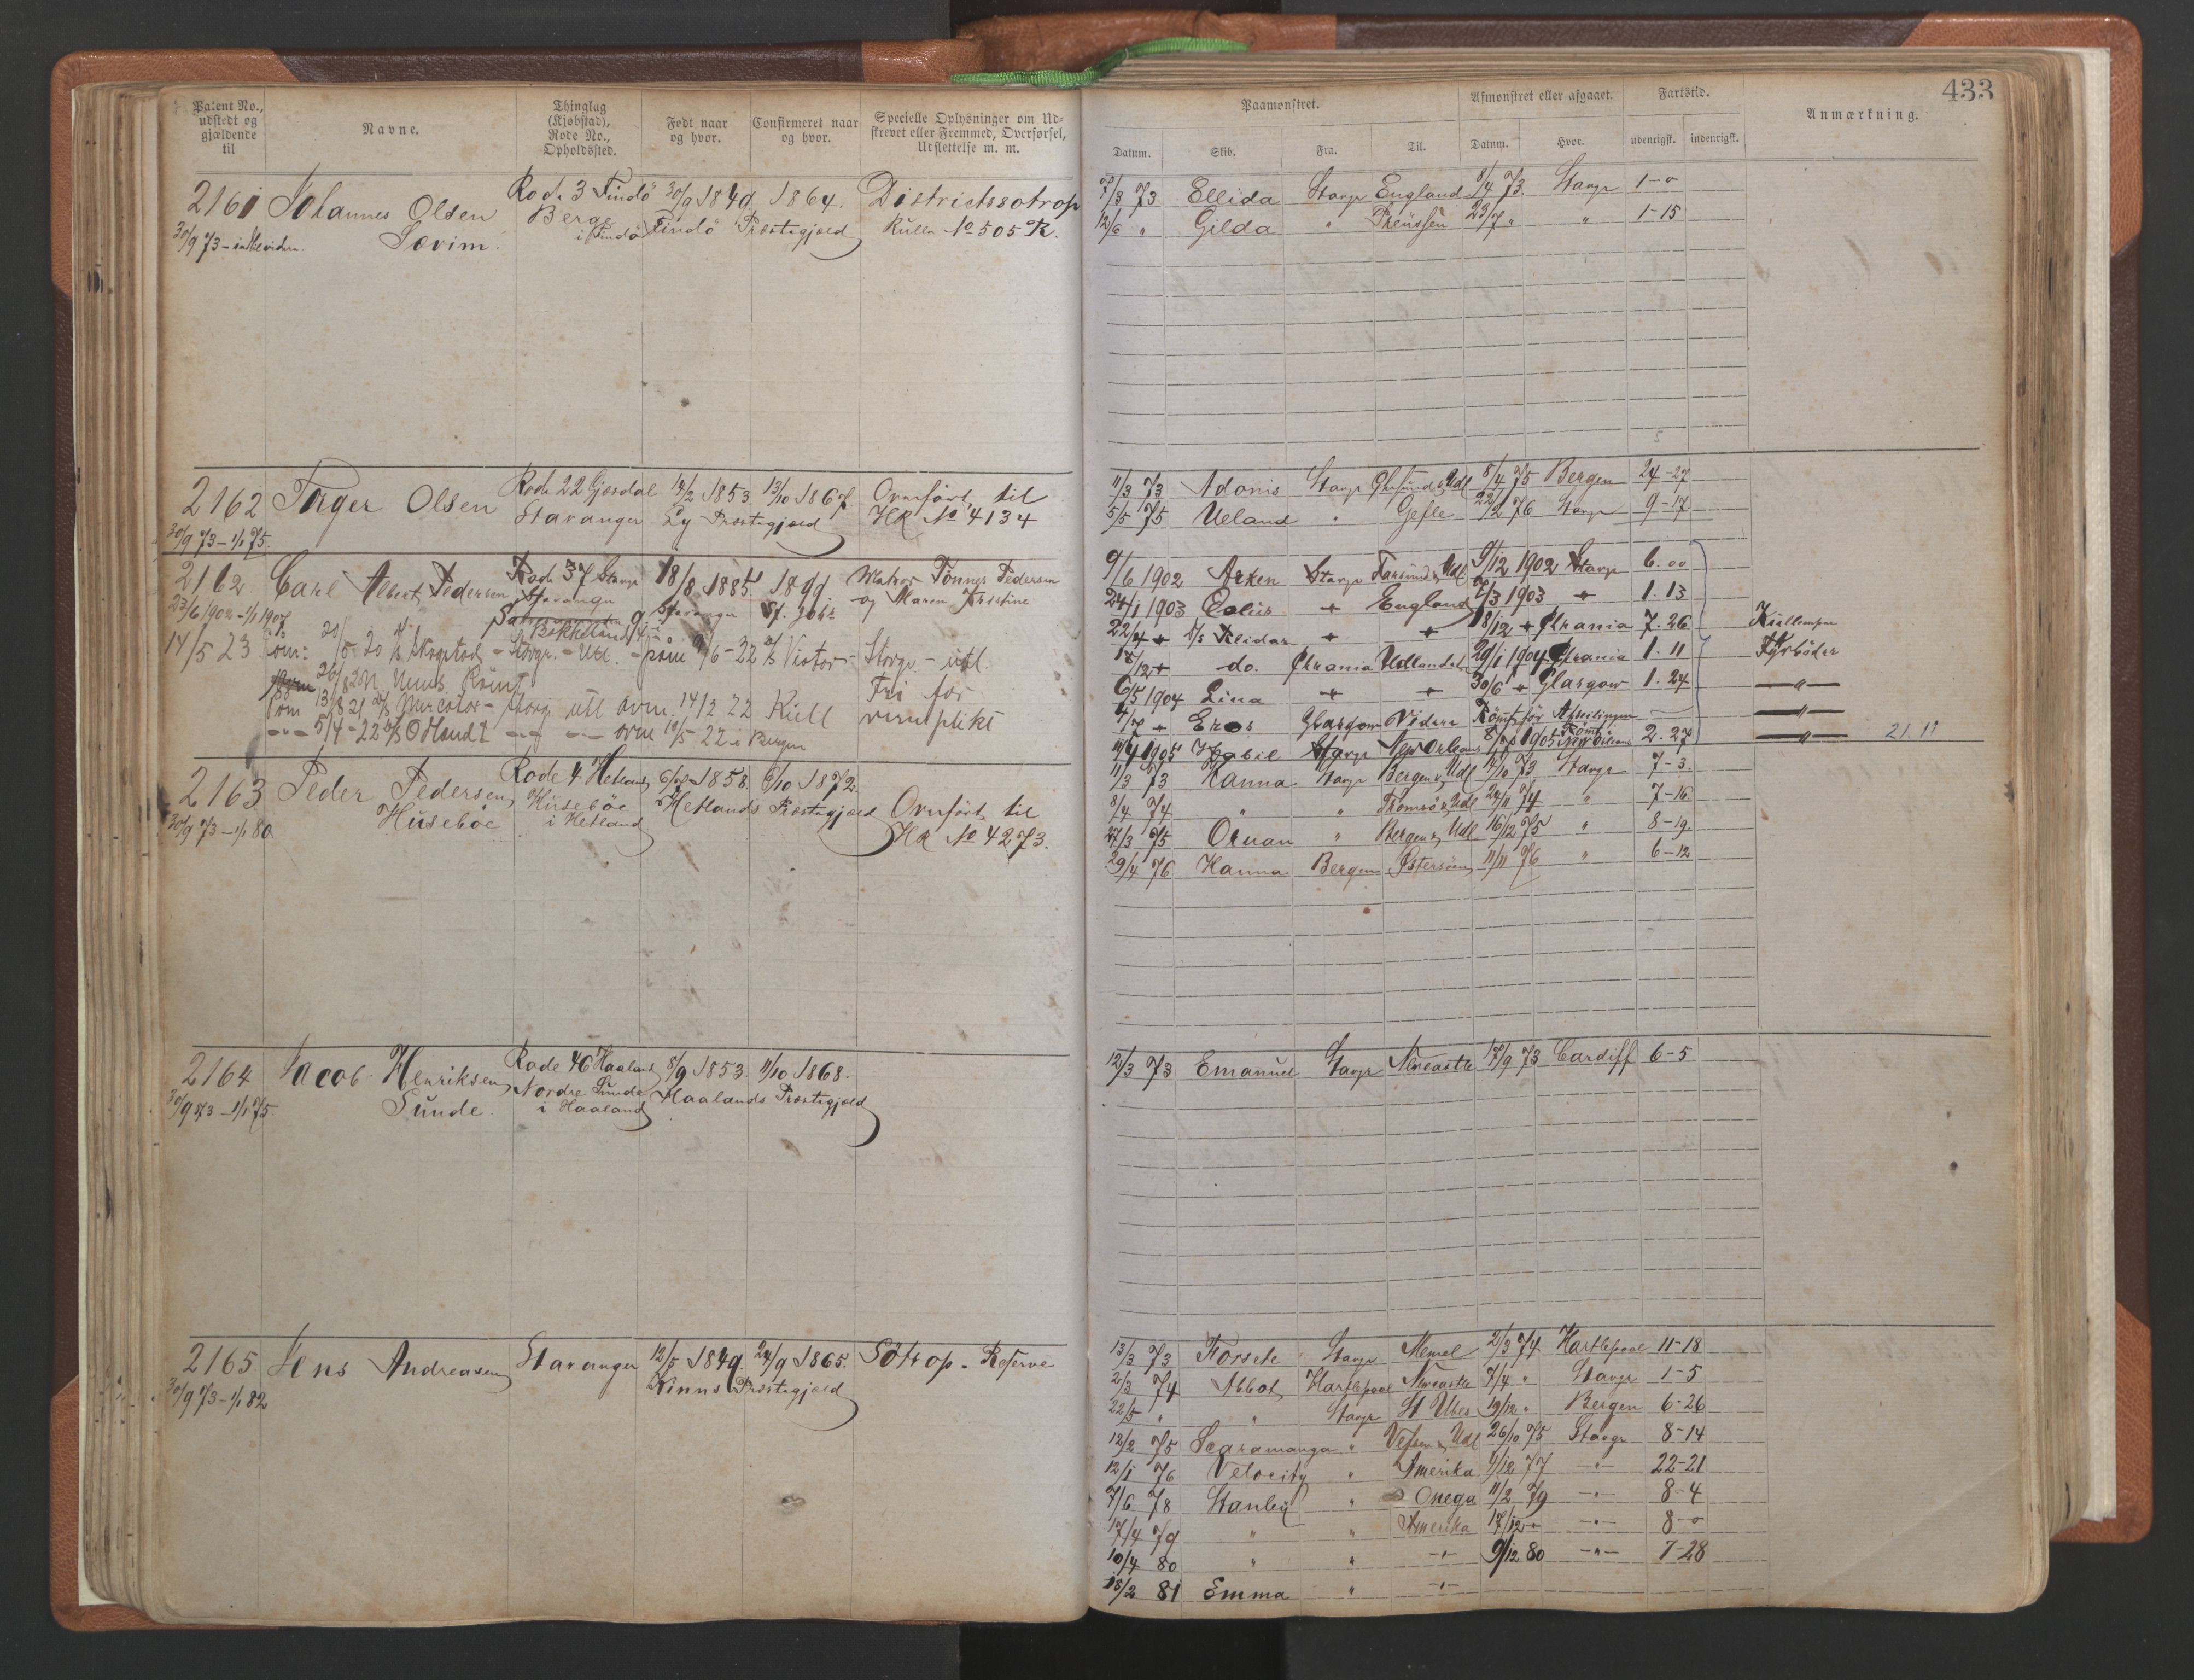 Patent No., udstedt og gjældende til
Navne.
Thinglag (Kjøbstad), Rode No., Opholdssted.
Født naar og hvor.
Confirmeret naar og hvor.
Specielle Oplysninger om Udskrevet eller Fremmed, Overførsel, Udslettelse m. m.
433
Paamønstret.
Afmønstret eller afgaaet.
Fartstid.
Anmærkning.
Datum. Skib. Fra. Til. Datum. Hvor. udenrigsk. indenrigsk.
2161 Johannes Olsen Rode 3 Findö 30/9 1849. 1864. Districtssotrop
Sævim. Berge i Findö Findö Præstegjæld Rulle No 505 R.
30/9 73 –
7/3 73 Ellida Stavgr England 8/4 73. Stavgr 1-0
12/6 " Gilda " Preüssen 23/7 " " 1-15
2162 Tager Olsen Rode 22 Gjesdal 14/2 1853. 13/10 1867. Overført til
Stavanger Ly Præstegjæld HR No 4134
30/9 73 – 1/1 75.
11/3 73 Adonis Stavgr & Udl 8/4 75 Bergen 24-27
5/5 75 Ueland " Gefle 22/2 76 Stavgr 9-17
2162. Carl Albert Pedersen Rode 37 Stavgr 18/8 1885 1899. Matros Tönnes Pedersen
23/6 1902 – 1/1 1907 Stavanger Stavanger St. Johs og Maren Kristine
14/5 23. om: 20/5 20 Skogstad – Stavgr. – Utl. – påm 9/6-22 Victor – Stavgr. – utl.
26/8 21 Venus
Fri for
om 13/8 21 Mercator – Stavgr utl avm. 14/2 22 Kiell vernplikt
—"— 5/4-22 O Handt —"— —"— avm 10/5-22 i Bergen
9/6 1902 Arken Stavgr Farsund & Udl 9/12 1902 Stavgr 6.00
24/1 1903 Eolus + England 7/3 1903 + 1.13
22/4 + + + 18/12 + Chrania 7.26 Kullemper
18/12 + do. Chrania Udlandet 29/1 1904 Chrania 1.11 Fyrböder
6/5 1904 Lina + + 30/6 + Glasgow 1.24 —"—
7/7 + Eros Glasgow Videre Römt för Afseilingen —"—
11/4 1905 Stavgr New Orleans 8/7 1905 Römt New Orleans 2.27 —"— 21.11
2163 Peder Pedersen Rode 4 Hetland 6/7 1858. 6/10 1872.
Husebøe Husebøe i Hetland Hetlands Præstegjæld Overført til
30/9 73 – 1/1 80. HR No 4273.
11/3 73 Hanna Stavgr Bergen & Udl 14/10 73 Stavgr 7-3.
8/4 74 " " Tromsö & Udl 24/11 74 " 7-16
27/3 75 Oruan " Bergen & Udl 16/12 75 " 8-19.
29/4 76 Hanna Bergen Østersøen 11/11 76 " 6-12
2164 Jacob Henriksen Rode 46 Haaland 8/9 1853. 11/10 1868.
Sunde. Nordre Sunde i Haaland Haalands Præstegjæld
30/9 73 – 1/1 75.
12/3 73 Emanuel Stavgr Newcastle 17/9 73 Cardiff 6-5
2165. Jens Andreasen Stavanger 12/5 1849. 24/9 1865. Søtrop – Reserve
Kinns Præstegjæld
30/9 73 – 1/1 82
13/3 73 Forsete Stavgr Memel 2/3 74 Hartlepool 11-18
2/3 74 Abbot Hartlepool Newcastle 7/4 " Stavgr 1-5
22/5 " " Stavgr St Ubes 19/12 " Bergen 6-26
12/2 75 Scaramanga " Vefsen & Udl 26/10 75 Stavgr 8-14
12/1 76 Velocity " Amerika 4/12 77 —"— 22-21
7/6 78 Stanley " Onega 11/2 79 —"— 8-4
17/4 79 " " Amerika 17/12 " —"— 8-0
10/4 80 " " —"— 9/12 80 —"— 7-28
15/2 81 Emma " —"—